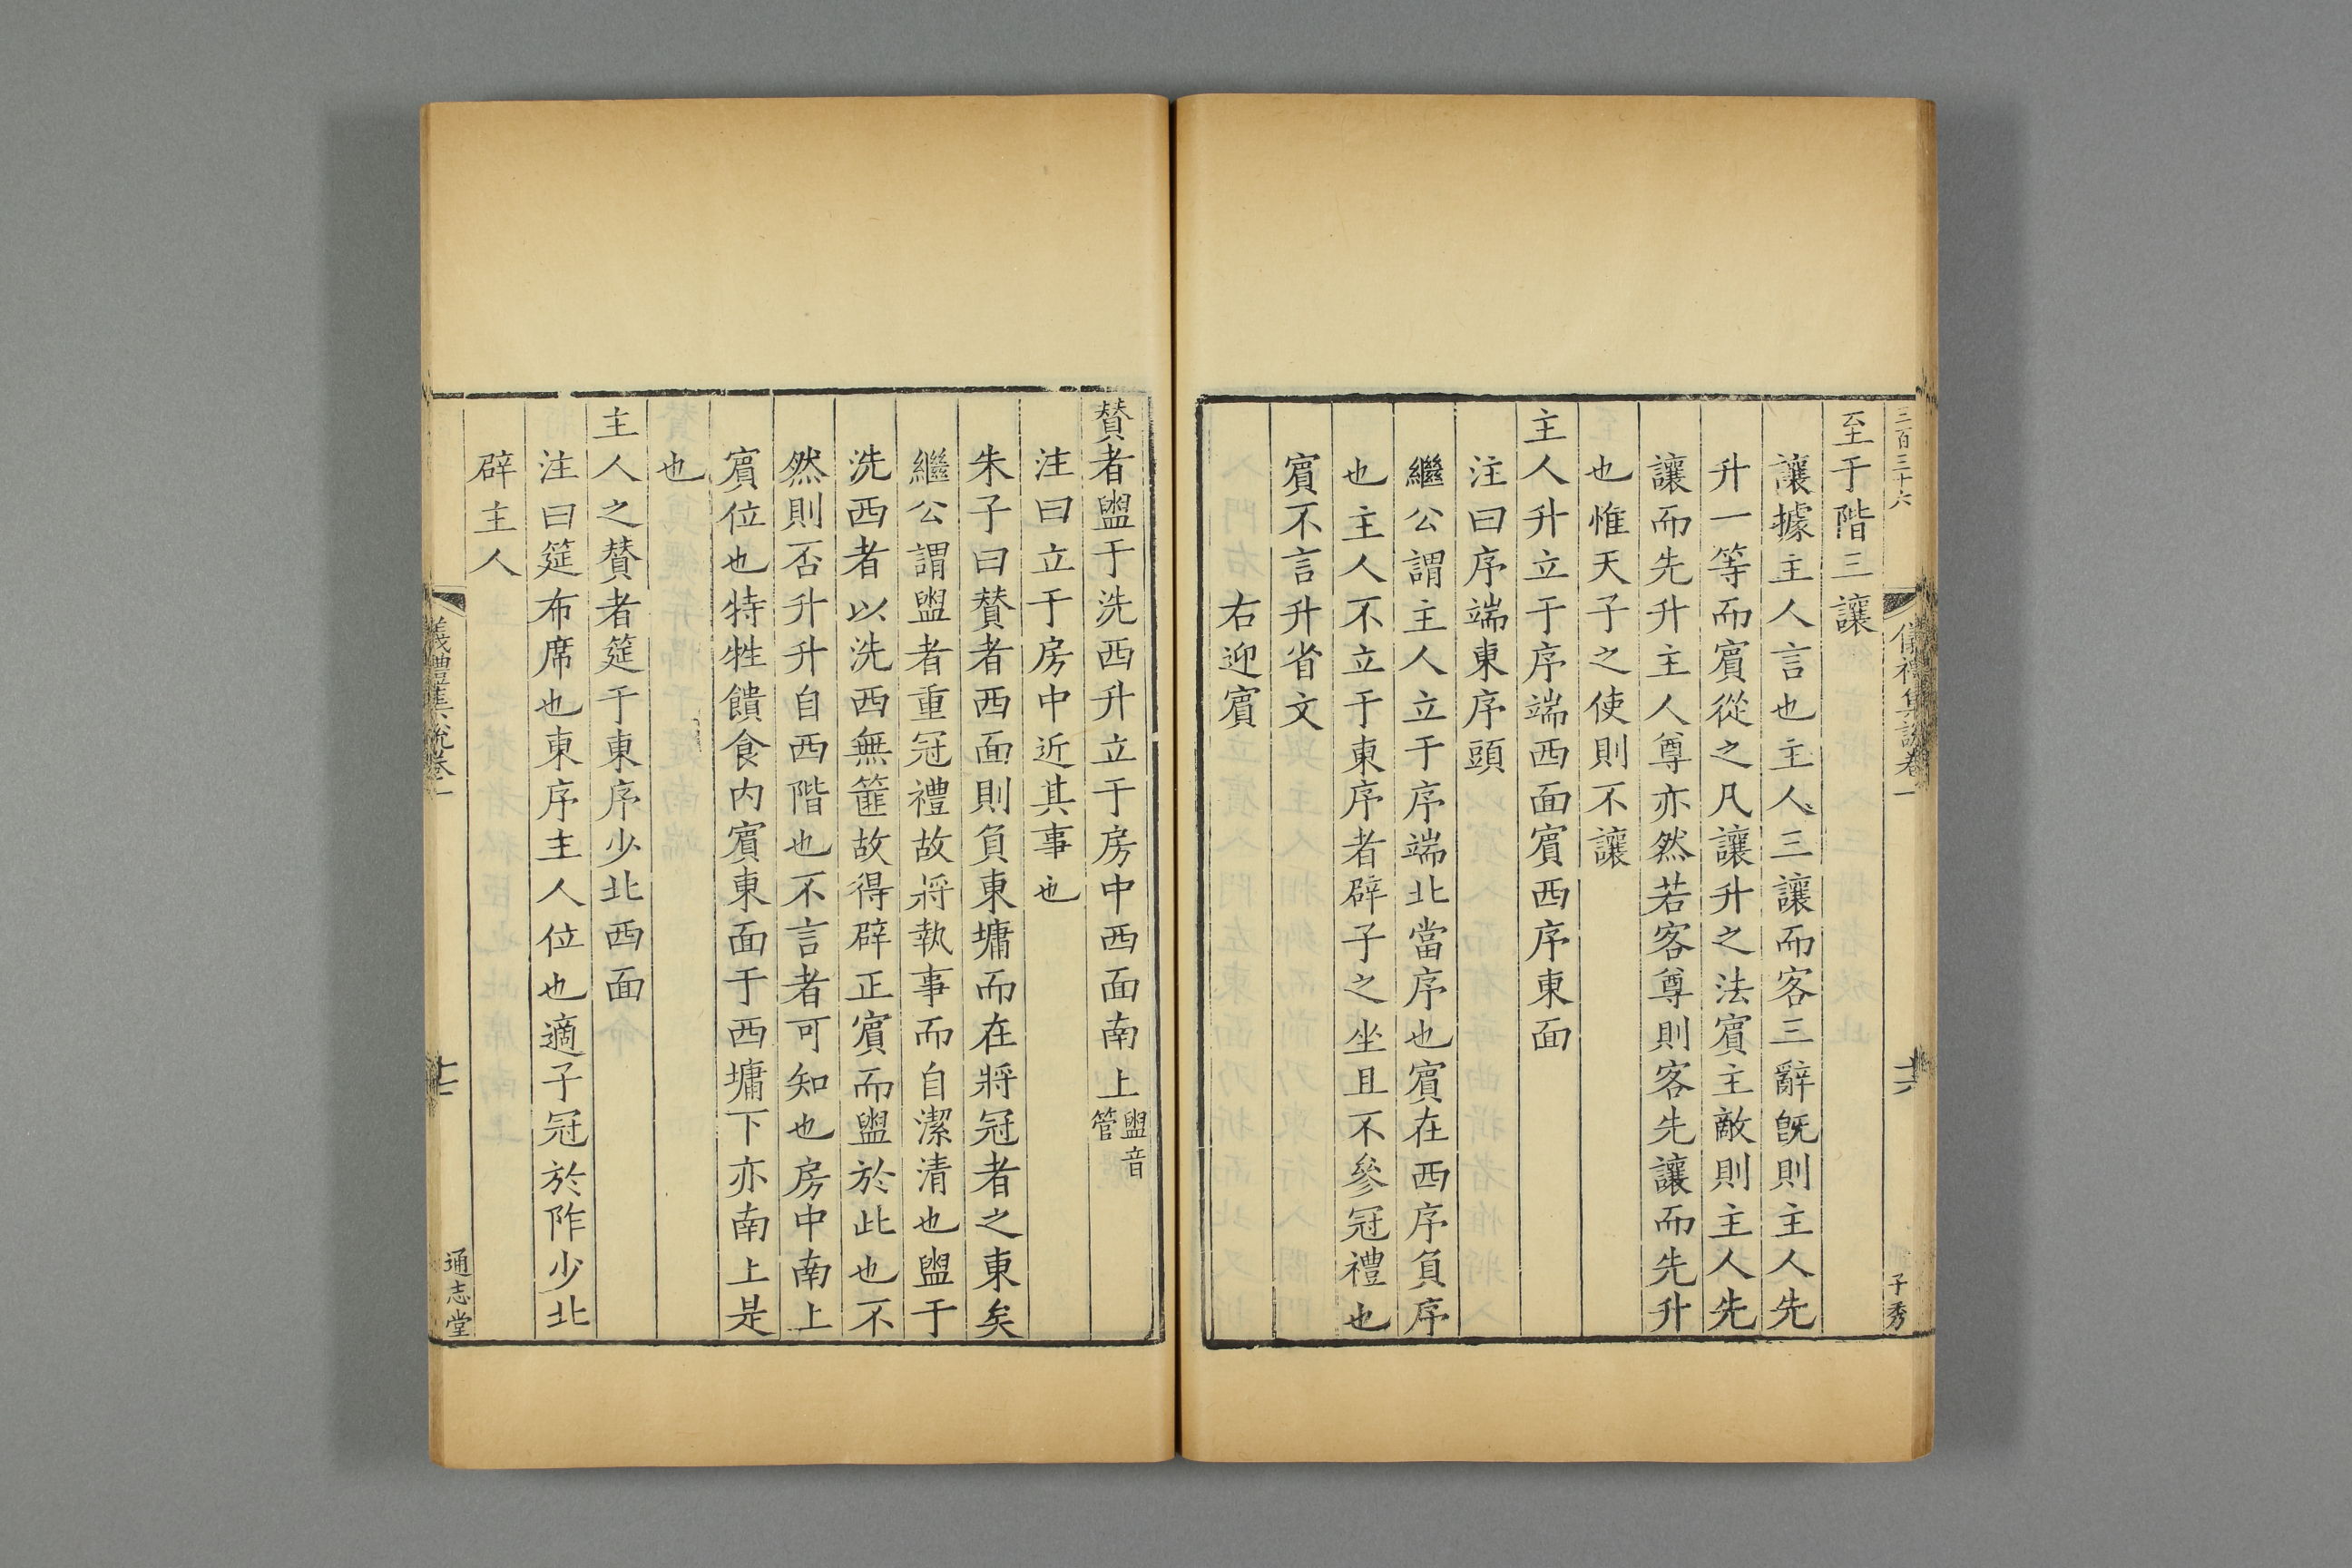 三百三十六
儀禮集說卷一
十六
子秀
至于階三讓
讓據主人言也主人三讓而客三辭旣則主人先
升一等而賔從之凡讓升之法賔主敵則主人先
讓而先升主人尊亦然若客尊則客先讓而先升
也惟天子之使則不讓
主人升立于序端西面賔西序東面
注曰序端東序頭
繼公謂主人立于序端北當序也賔在西序負序
也主人不立于東序者辟子之坐且不參冠禮也
賔不言升省文
右迎賔
賛者盥于洗西升立于房中西面南上盥音管
注曰立于房中近其事也
朱子曰賛者西面則負東墉而在將冠者之東矣
繼公謂盥者重冠禮故將執事而自潔清也盥于
洗西者以洗西無篚故得辟正賔而盥於此也不
然則否升升自西階也不言者可知也房中南上
賔位也特牲饋食內賔東面于西墉下亦南上是
也
主人之賛者筵于東序少北西面
注曰筵布席也東序主人位也適子冠於阼少北
辟主人
儀禮集說卷一
通志堂